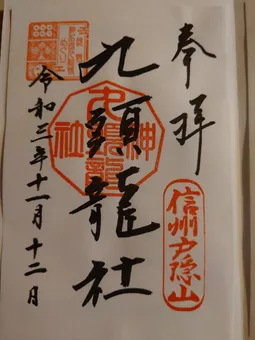 奉拝
信州戸隠山
九頭龍社
神
社
令和三年十一月十二日